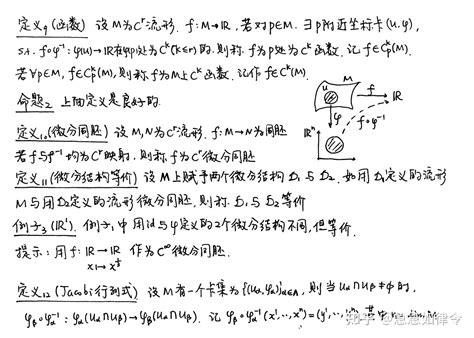 定义9(函数) 设M为Cʳ流形. f:M→ℝ, 若对p∈M. ∃p附近坐标卡(U,φ),
s.t. f∘φ⁻¹: φ(U)→ℝ在φ(p)处为Cᵏ(k≤r)的. 则称f为p处为Cᵏ函数. 记f∈Cᵏₚ(M).
若∀p∈M, f∈Cᵏₚ(M), 则称f为M上Cᵏ函数. 记作f∈Cᵏ(M).
命题2 上面定义是良好的.
U M f ℝ
φ
ℝⁿ f∘φ⁻¹
定义10(微分同胚) 设M,N为Cʳ流形. f:M→N为同胚
若f与f⁻¹均为Cʳ映射, 则称f为Cʳ微分同胚
定义11(微分结构等价) 设M上赋予两个微分结构D₁与D₂. 如用D₁定义的流形
M与用D₂定义的流形微分同胚, 则称D₁与D₂等价
例子3(ℝ¹). 例子1中用id与φ定义的2个微分结构不同, 但等价.
提示: 用f: ℝ→ℝ 作为C^∞微分同胚.
x↦x^⅓
定义12(Jacobi行列式) 设M有一个卡集为{(Uα,φα)}α∈A, 则当Uα∩Uβ≠∅时,
φβ∘φα⁻¹: φα(Uα∩Uβ)→φβ(Uα∩Uβ). 记 φβ∘φα⁻¹(x¹,⋯,xⁿ)=(y¹,⋯,yⁿ). 其中
知乎 @急急如律令